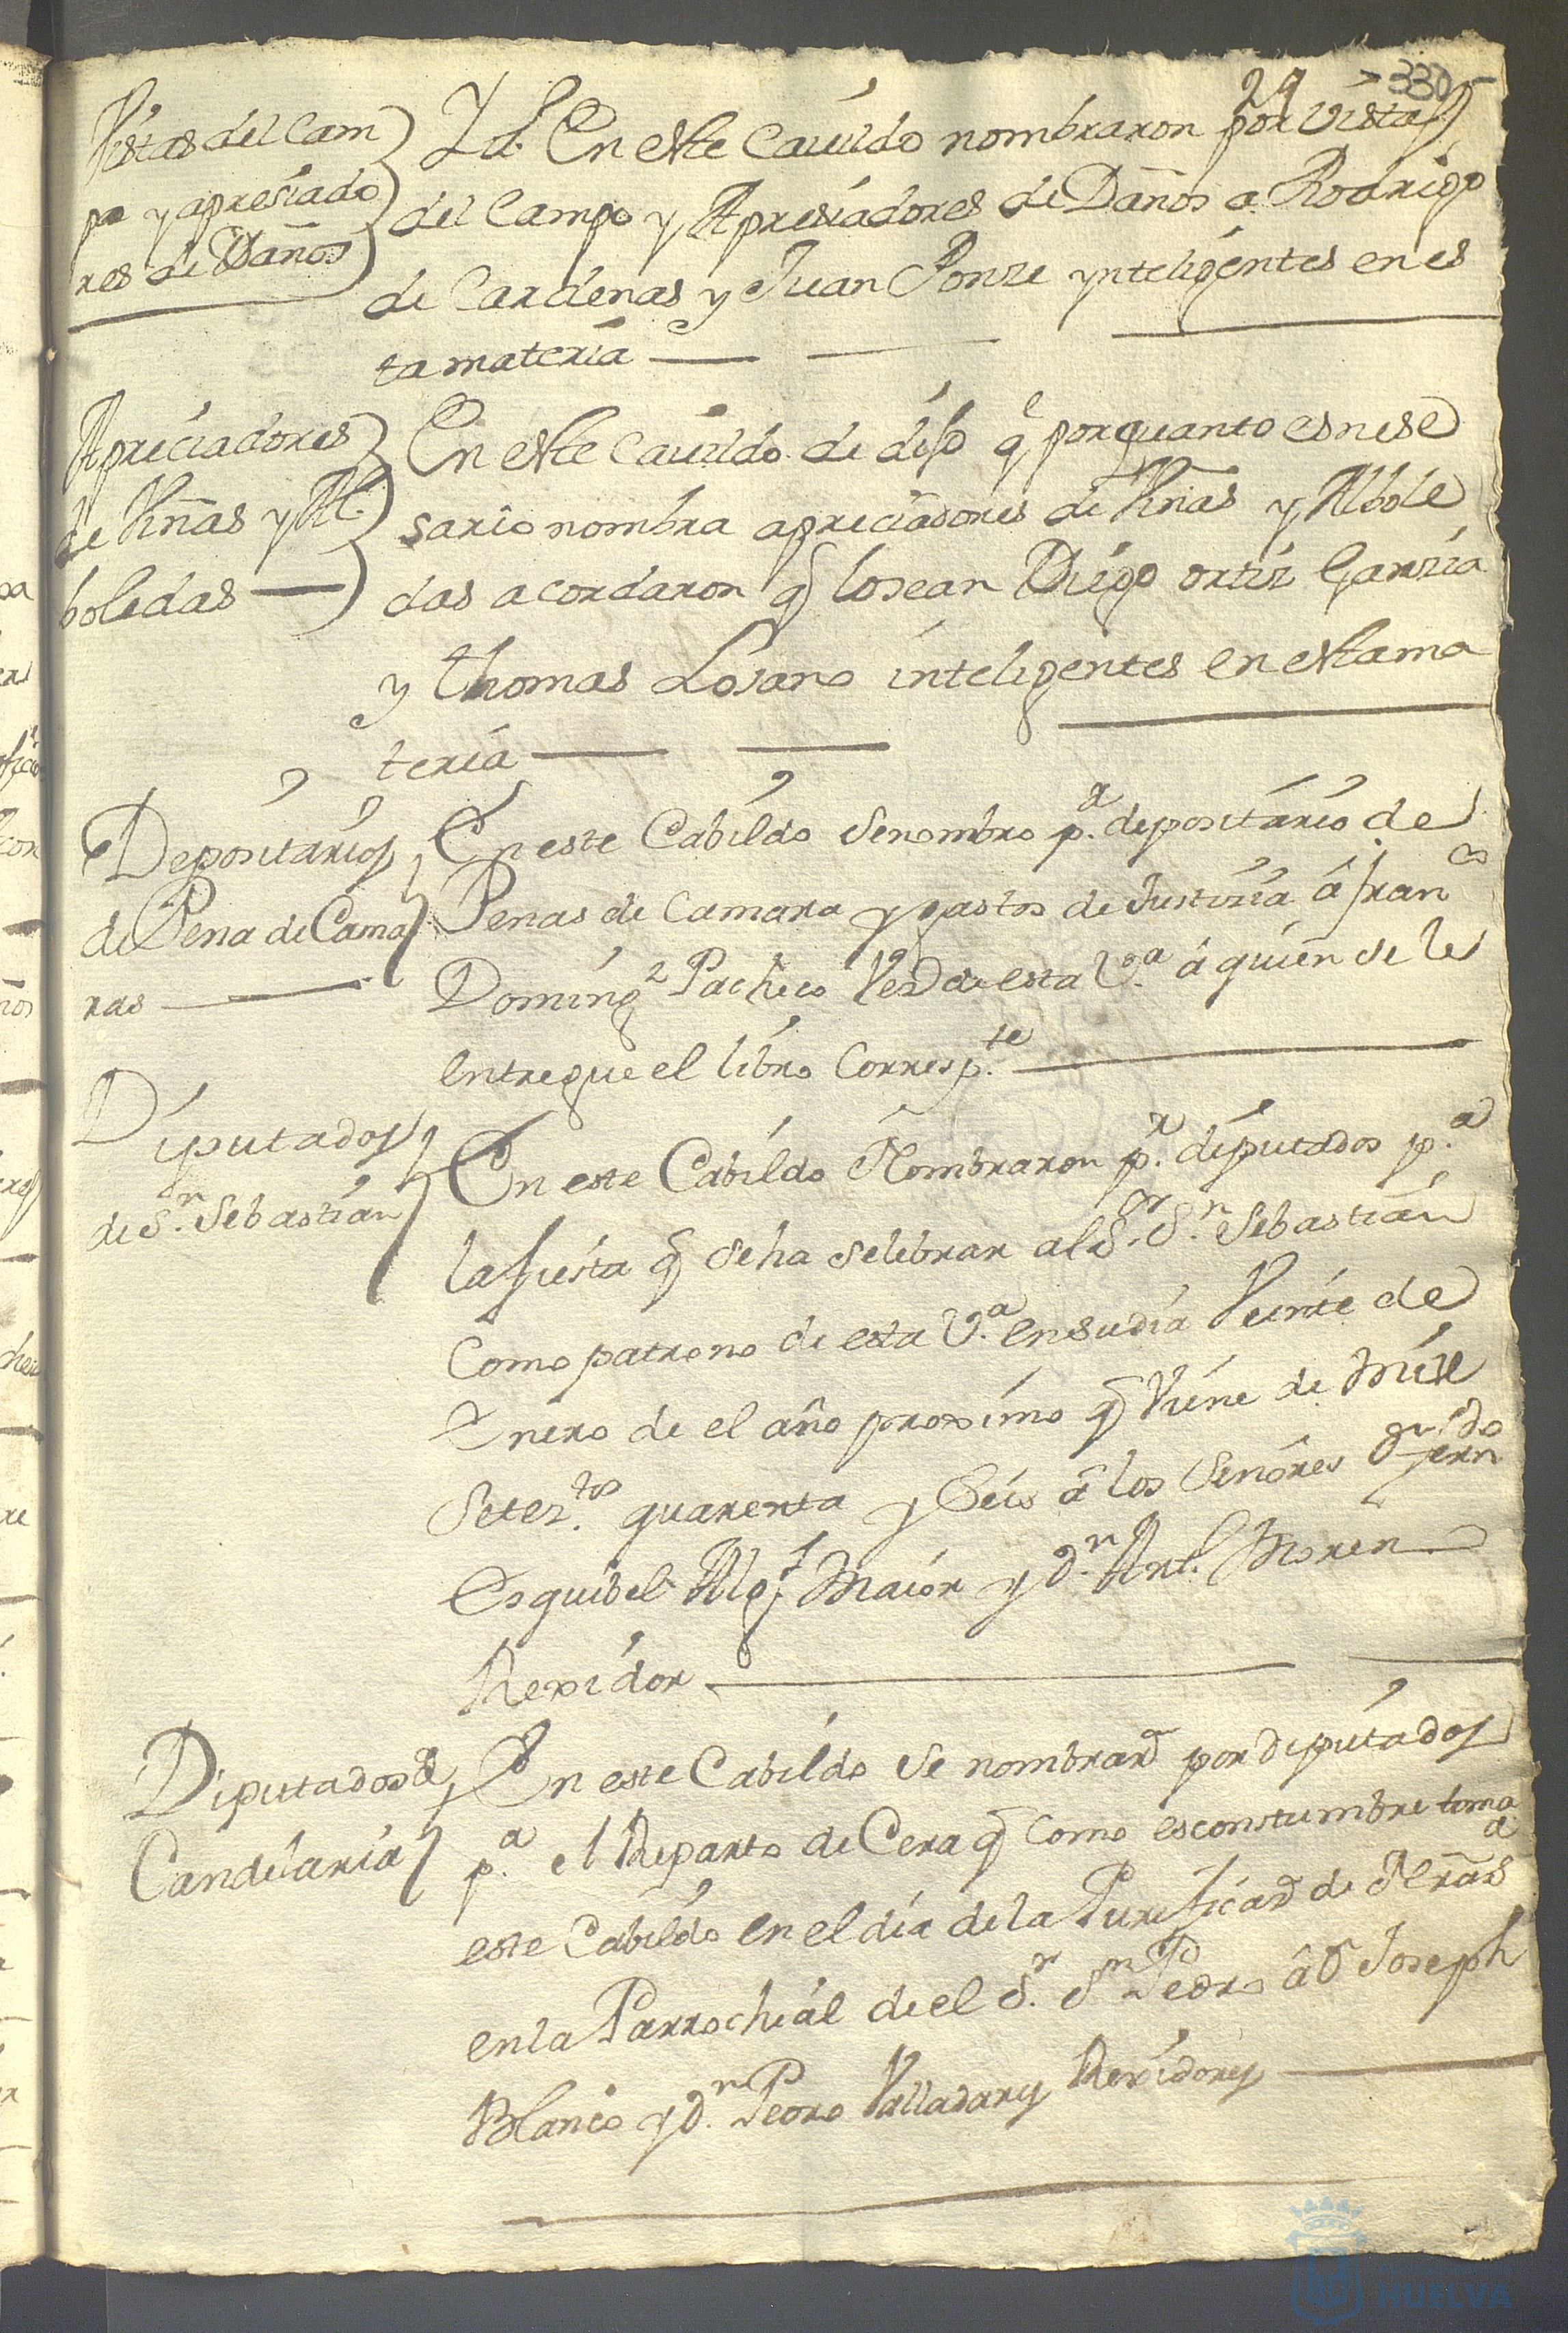 29 330
Vistas del Cam
po y apresiado
res de Daños
Yd. En este Cauildo nombraron por Vistas
del Campo y Apresiadores de Daños a Rodrigo
de Cardenas y Juan Ponze ynteligentes en es
ta materia
Apreciadores
de Viñas y Al
boledas
En este Cauildo de dijo q.e por quanto es nese
sario nombra apreciadores de Viñas y Albole
das acordaron q lo sean Diego ortiz Garzia
y Thomas Losano inteligentes en esta ma
teria
Depositarios
de Pena de Cama
ras
En este Cabildo Se nombro p.a depositario de
Penas de Camara y gastos de Justizia â fran.co
Doming.z Pacheco Vez.o de esta V.a â quien se le
entregue el libro Corresp.te
Diputados
de S.n Sebastian
En este Cabildo Nombraron p.a diputados p.a
la fiesta q Se ha Selebrar al S.or S.n Sebastian
Como patrono de esta V.a en su dia Veinte de
Enero de el año proximo q Viene de Mill
Setez.tos quarenta y Seis â los Señores D.n fern.do
Esquibel Alg.l Maior y D.n Ant.o Moren
Rexidor
Diputados de
Candelaria
En este Cabildo Se nombraron por diputados
p.a el Reparto de Cera q Como es constumbre toma
este Cabildo en el dia de la Purificaon de Nra S.a
en la Parrochial de el S.r S.n Pedro â D.n Joseph
Blanco y D.n Pedro Valladares Rexidores
HUELVA